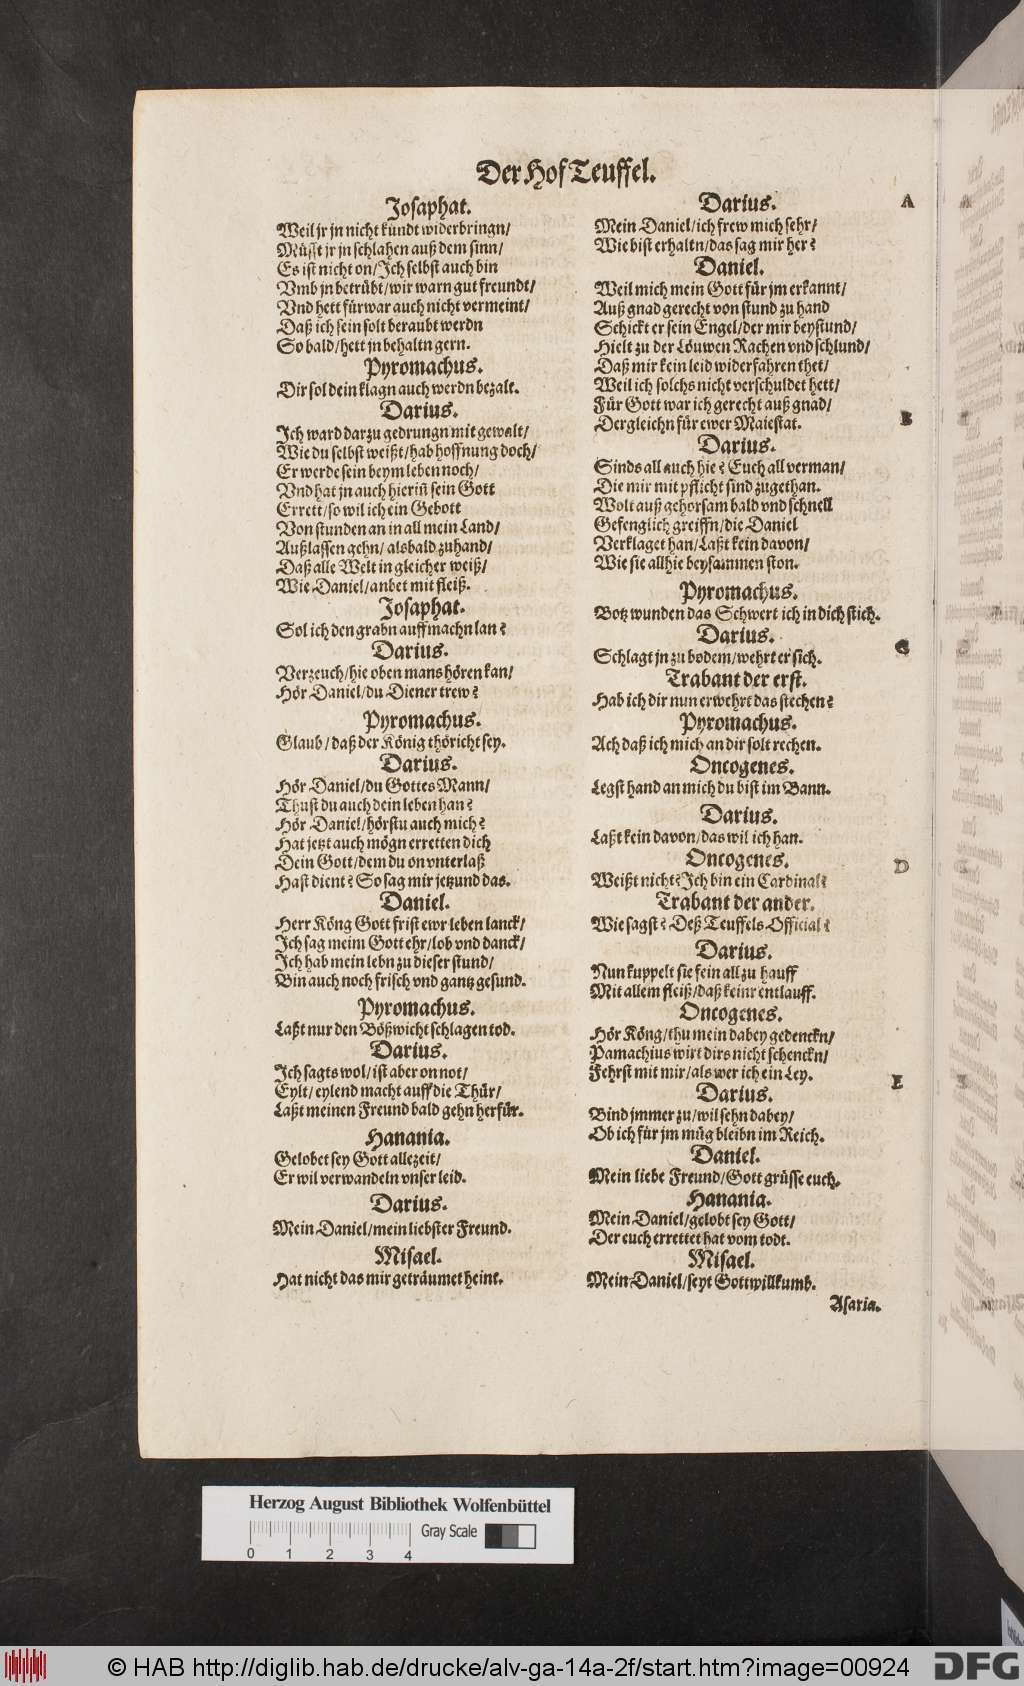 Der Hof Teuffel.
Josaphat.
Weil jr jn nicht kündt widerbringn/
Müsst jr jn schlahen auß dem sinn/
Es ist nicht on/Ich selbst auch bin
Vmb jn betrübt/wir warn gut freundt/
Vnd hett fürwar auch nicht vermeint/
Daß ich sein solt beraubt werdn
So bald/hett jn behaltn gern.
Pyromachus.
Dir sol dein klagn auch werdn bezalt.
Darius.
Ich ward darzu gedrungn mit gewalt/
Wie du selbst weißt/hab hoffnung doch/
Er werde sein beym leben noch/
Vnd hat jn auch hierin̄ sein Gott
Errett/so wil ich ein Gebott
Von stunden an in all mein Land/
Außlassen gehn/alsbald zuhand/
Daß alle Welt in gleicher weiß/
Wie Daniel/anbet mit fleiß.
Josaphat.
Sol ich den grabn auffmachn lan?
Darius.
Verzeuch/hie oben mans hören kan/
Hör Daniel/du Diener trew?
Pyromachus.
Glaub/daß der König thöricht sey.
Darius.
Hör Daniel/du Gottes Mann/
Thust du auch dein leben han?
Hör Daniel/hörstu auch mich?
Hat jetzt auch mögn erretten dich
Dein Gott/dem du on vnterlaß
Hast dient? So sag mir jetzund das.
Daniel.
Herr Köng Gott frist ewr leben lanck/
Ich sag meim Gott ehr/lob vnd danck/
Ich hab mein lebn zu dieser stund/
Bin auch noch frisch vnd gantz gesund.
Pyromachus.
Laßt nur den Bößwicht schlagen tod.
Darius.
Ich sagts wol/ist aber on not/
Eylt/eylend macht auff die Thür/
Laßt meinen Freund bald gehn herfür.
Hanania.
Gelobet sey Gott allezeit/
Er wil verwandeln vnser leid.
Darius.
Mein Daniel/mein liebster Freund.
Misael.
Hat nicht das mir geträumet heint.
Darius.
A
Mein Daniel/ich frew mich sehr/
Wie bist erhaltn/das sag mir her?
Daniel.
Weil mich mein Gott für jm erkannt/
Auß gnad gerecht von stund zu hand
Schickt er sein Engel/der mir beystund/
Hielt zu der Löuwen Rachen vnd schlund/
Daß mir kein leid widerfahren thet/
Weil ich solchs nicht verschuldet hett/
Für Gott war ich gerecht auß gnad/
B
Dergleichn für ewer Maiestat.
Darius.
Sinds all auch hie? Euch all verman/
Die mir mit pflicht sind zugethan.
Wolt auß gehorsam bald vnd schnell
Gefenglich greiffn/die Daniel
Verklaget han/Laßt kein davon/
Wie sie allhie beysammen ston.
Pyromachus.
Botz wunden das Schwert ich in dich stich.
Darius.
C
Schlagt jn zu bodem/wehrt er sich.
Trabant der erst.
Hab ich dir nun erwehrt das stechen?
Pyromachus.
Ach daß ich mich an dir solt rechen.
Oncogenes.
Legst hand an mich du bist im Bann.
Darius.
Laßt kein davon/das wil ich han.
Oncogenes.
D
Weißt nicht? Ich bin ein Cardinal?
Trabant der ander.
Wie sagst? Deß Teuffels Official?
Darius.
Nun kuppelt sie fein all zu hauff
Mit allem fleiß/daß keinr entlauff.
Oncogenes.
Hör Köng/thu mein dabey gedenckn/
Pamachius wirt dirs nicht schenckn/
Fehrst mit mir/als wer ich ein Ley.
E
Darius.
Bind jmmer zu/wil sehn dabey/
Ob ich für jm müg bleibn im Reich.
Daniel.
Mein liebe Freund/Gott grüsse euch.
Hanania.
Mein Daniel/gelobt sey Gott/
Der euch errettet hat vom todt.
Misael.
Mein Daniel/seyt Gottwillkumb.
Asaria.
Herzog August Bibliothek Wolfenbüttel
Gray Scale
0 1 2 3 4
© HAB http://diglib.hab.de/drucke/alv-ga-14a-2f/start.htm?image=00924
DFG